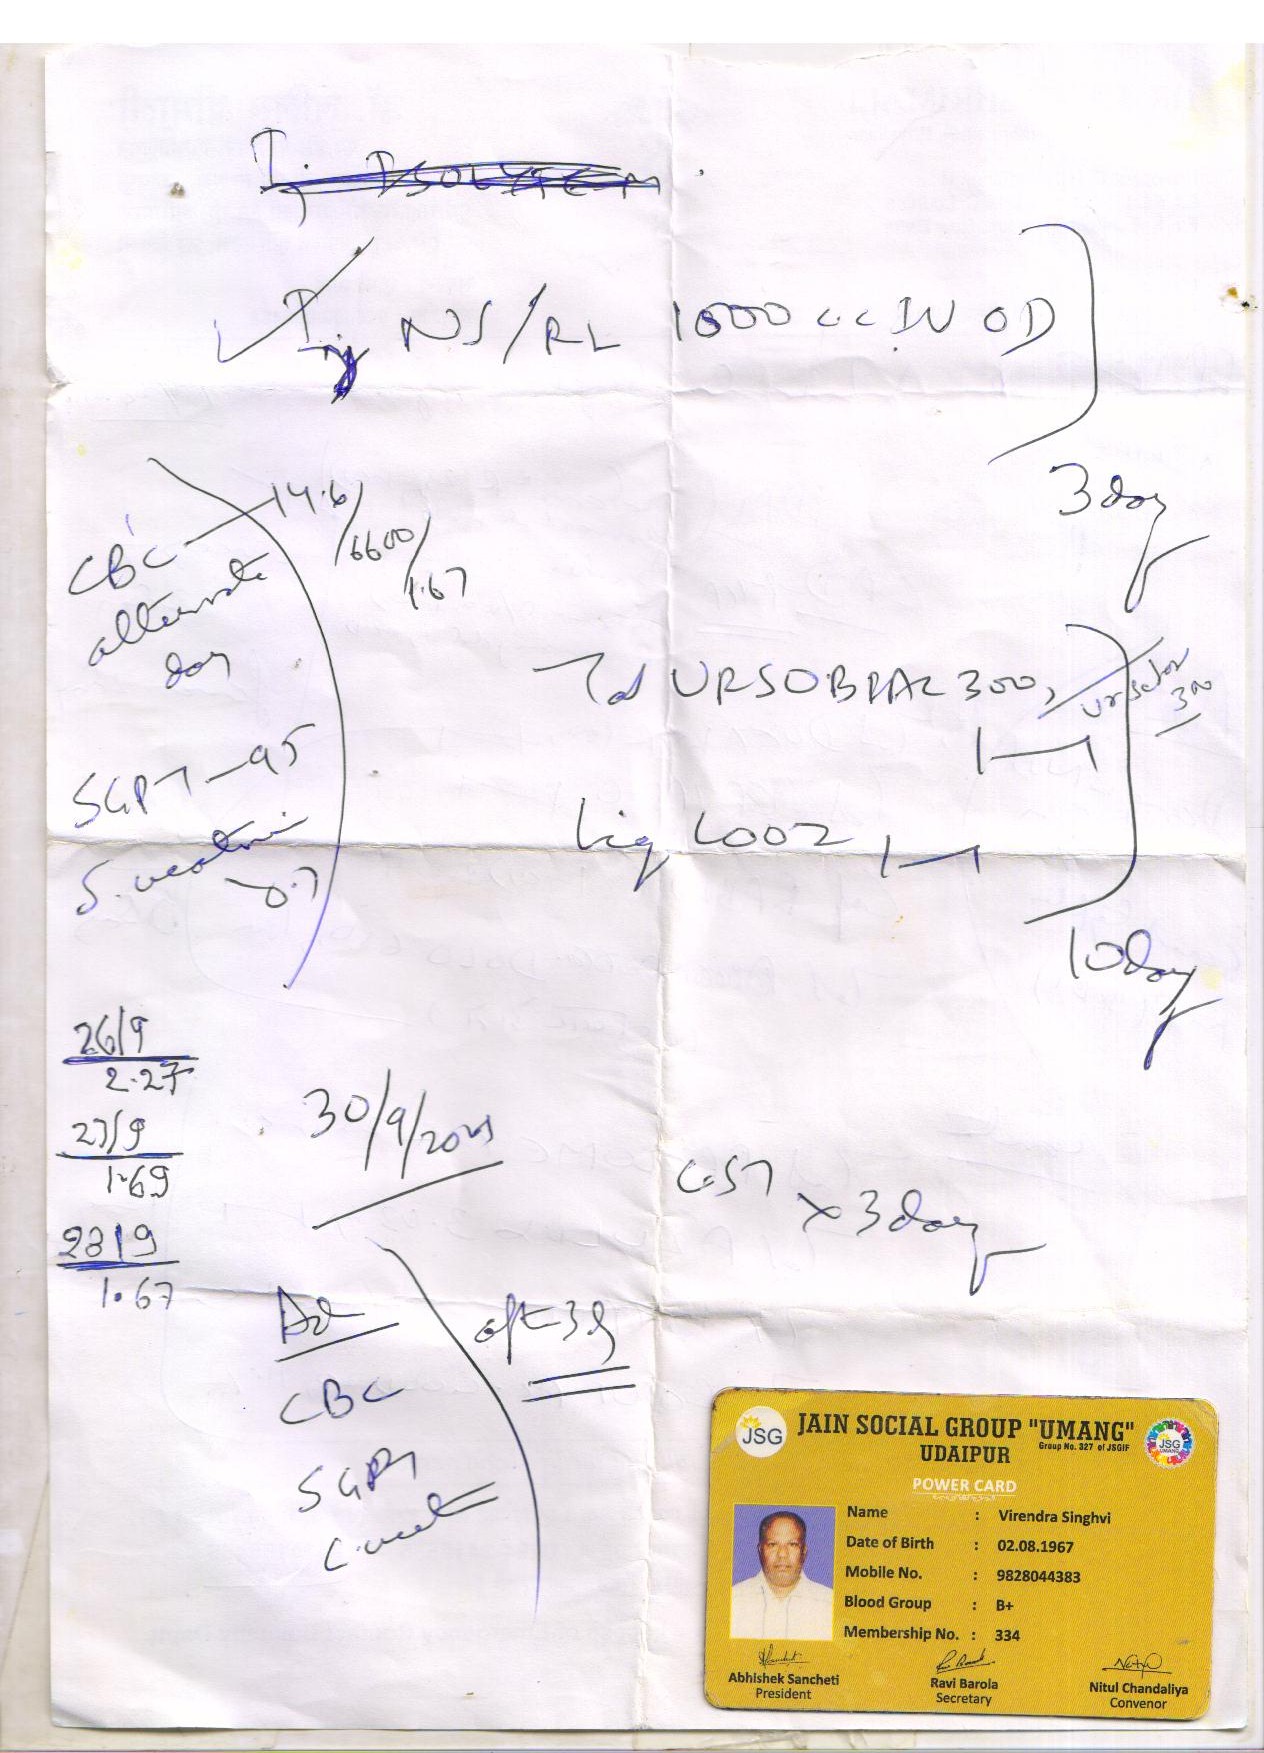 Inj. ISOLYTE M
Inj NS/RL 1000 cc IV OD
3 day
CBC 14.6/6600/1.67
alternate
day
Tab URSOBPAZ 300, / ursetor 300
1—1
SGPT — 95
S. creatinine
0.7
Liq LOOZ 1—1
10 day
26/9
2.27
27/9
1.69
28/9
1.67
30/9/2021
CST x 3 day
Ad
CBC
SGPT
C. creat
JSG
JAIN SOCIAL GROUP "UMANG"
Group No. 327 of JSGIF
UDAIPUR
JSG
UMANG
POWER CARD
Name : Virendra Singhvi
Date of Birth : 02.08.1967
Mobile No. : 9828044383
Blood Group : B+
Membership No. : 334
Abhishek Sancheti
President
Ravi Barola
Secretary
Nitul Chandaliya
Convenor